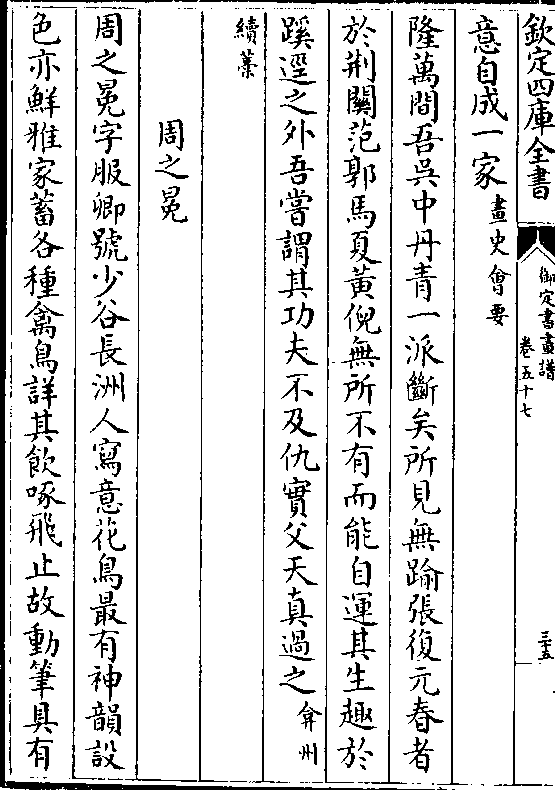 欽定四庫全書
御定書畫譜
卷五十七
三五
意自成一家畫史會要
隆萬間吾吳中丹青一派斷矣所見無踰張復元春者
於荆關范郭馬夏黄倪無所不有而能自運其生趣於
蹊逕之外吾嘗謂其功夫不及仇實父天真過之弇州
續藁
周之冕
周之冕字服卿號少谷長洲人寫意花鳥最有神韻設
色亦鮮雅家蓄各種禽鳥詳其飲啄飛止故動筆具有